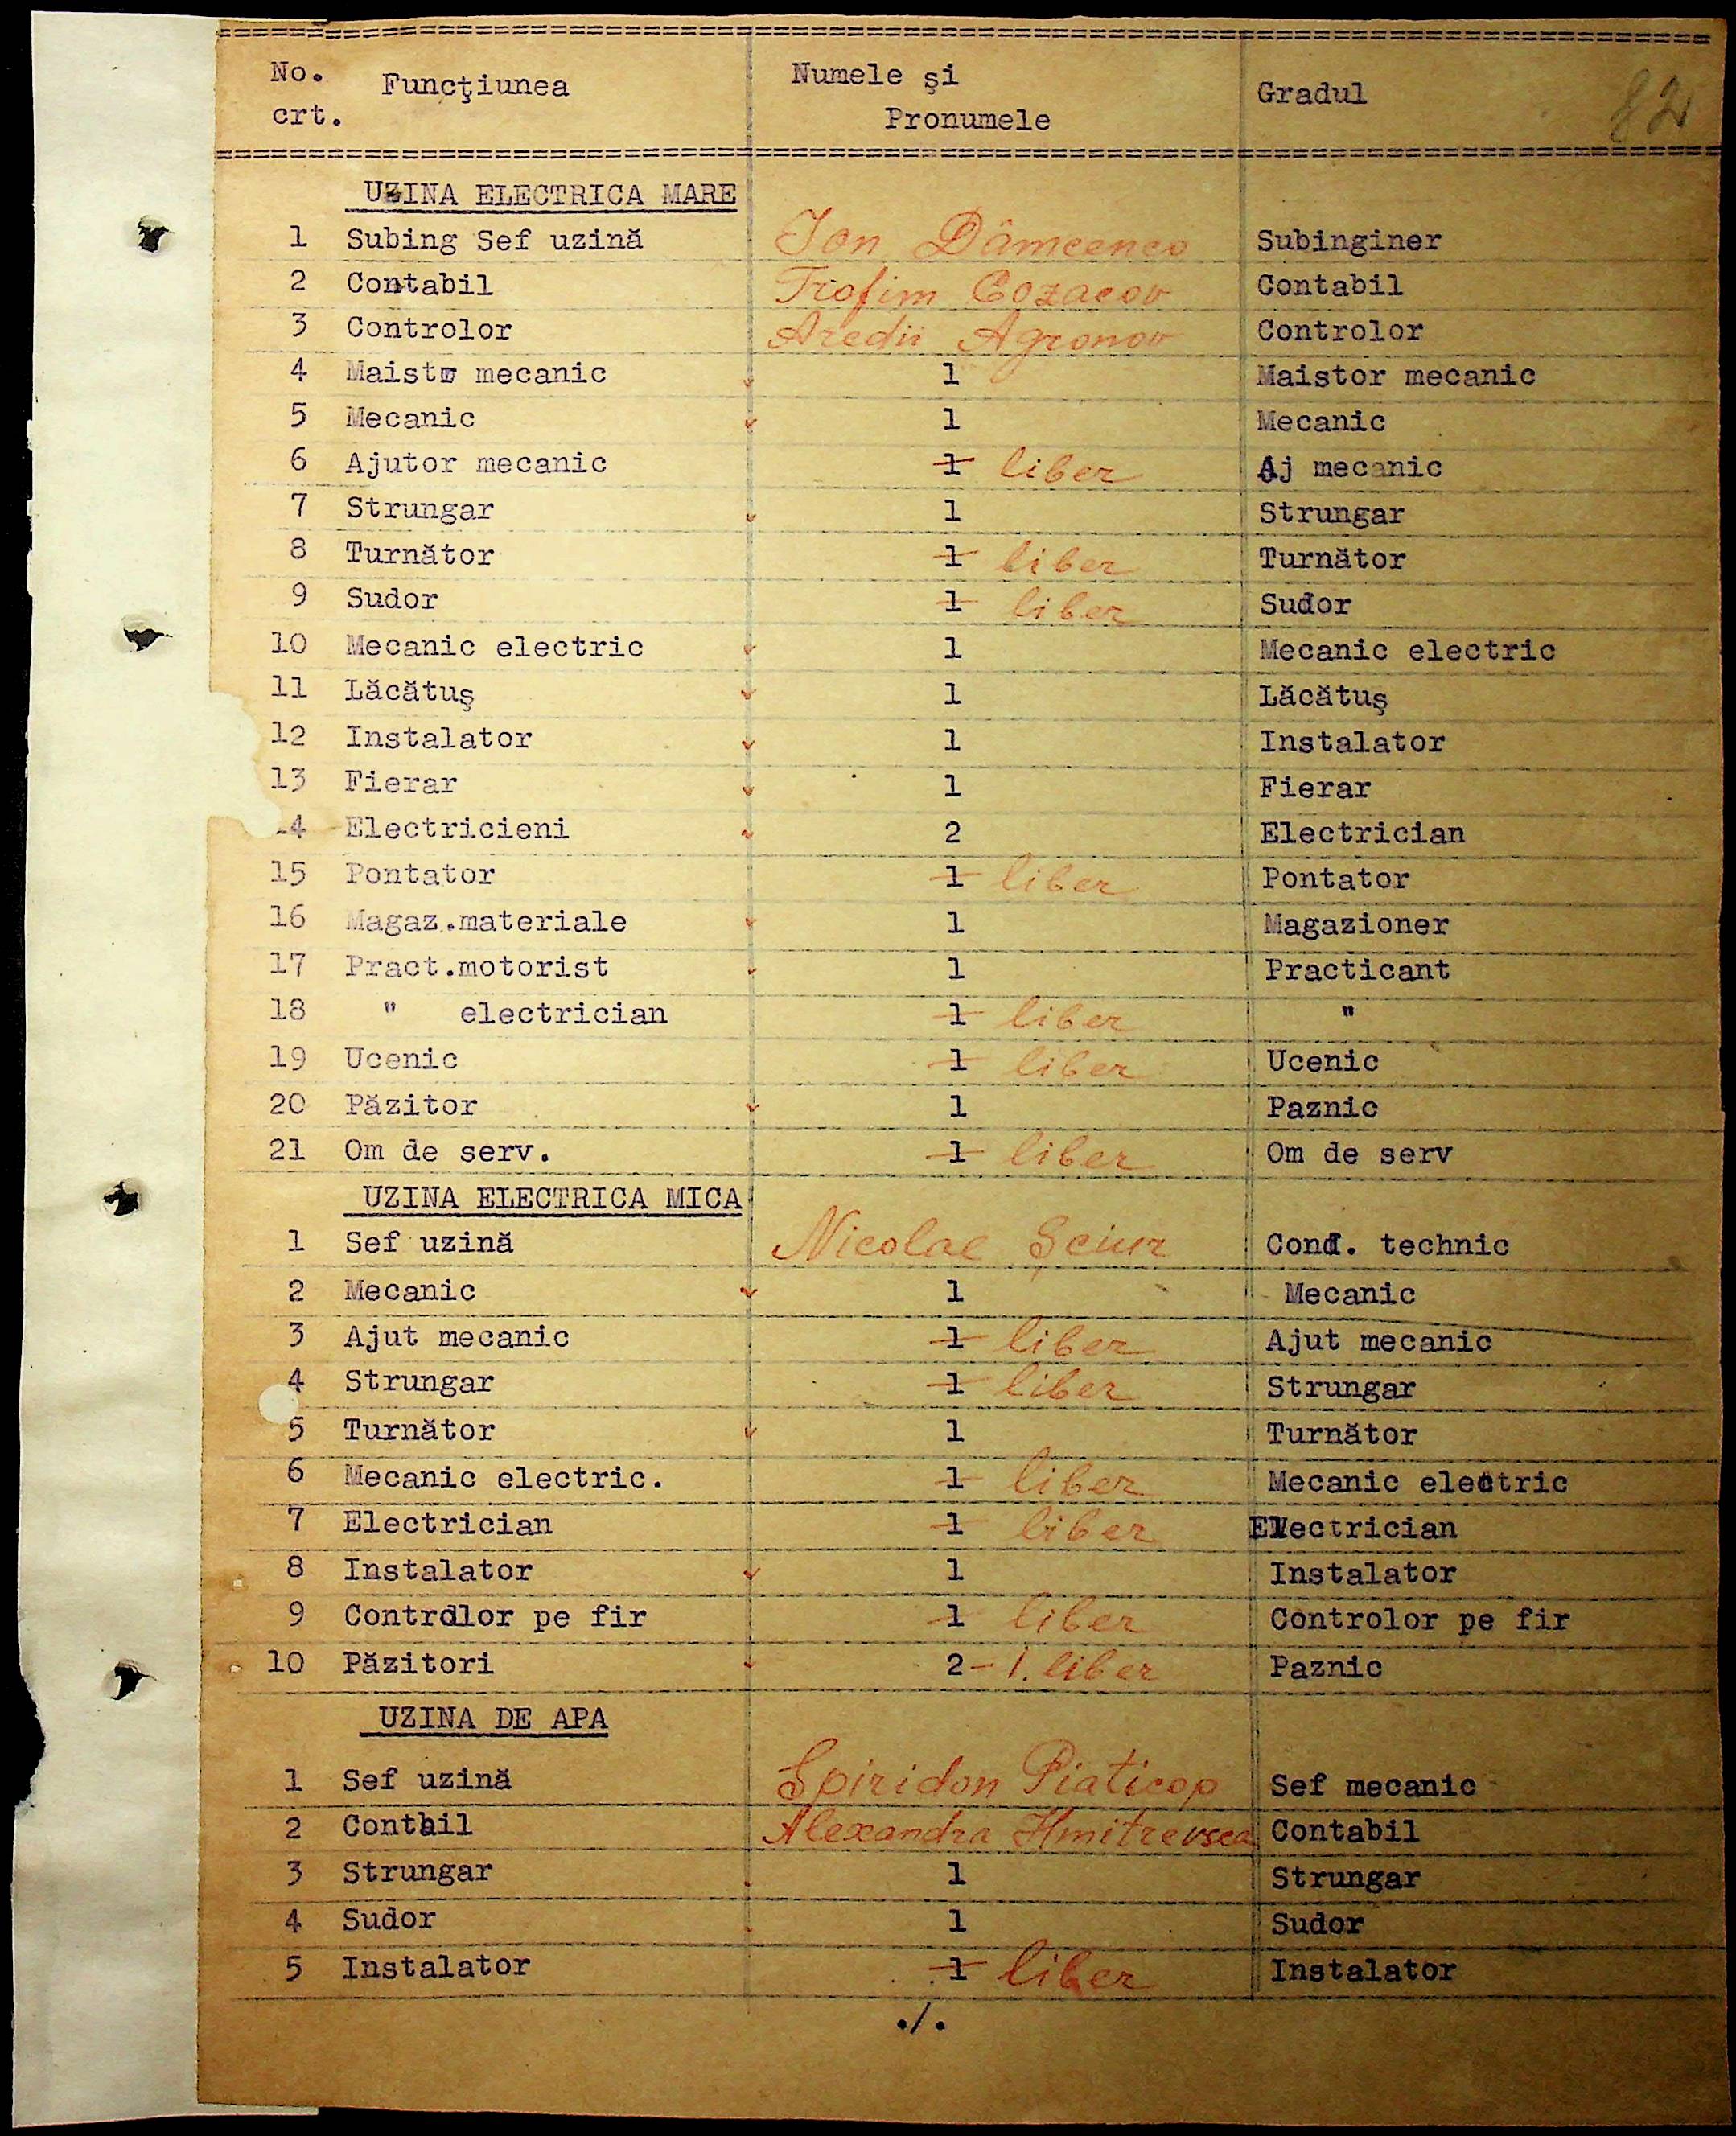 82
No. crt. Funcţiunea Numele şi Pronumele Gradul
UZINA ELECTRICA MARE
1 Subing Sef uzină Ion Dâmcenco Subinginer
2 Contabil Trofim Cozacov Contabil
3 Controlor Arcdii Agronov Controlor
4 Maistor mecanic 1 Maistor mecanic
5 Mecanic 1 Mecanic
6 Ajutor mecanic 1 liber Aj mecanic
7 Strungar 1 Strungar
8 Turnător 1 liber Turnător
9 Sudor 1 liber Sudor
10 Mecanic electric 1 Mecanic electric
11 Lăcătuş 1 Lăcătuş
12 Instalator 1 Instalator
13 Fierar 1 Fierar
14 Electricieni 2 Electrician
15 Pontator 1 liber Pontator
16 Magaz.materiale 1 Magazioner
17 Pract.motorist 1 Practicant
18 " electrician 1 liber "
19 Ucenic 1 liber Ucenic
20 Păzitor 1 Paznic
21 Om de serv. 1 liber Om de serv
UZINA ELECTRICA MICA
1 Sef uzină Nicolae Şciur Cond. technic
2 Mecanic 1 Mecanic
3 Ajut mecanic 1 liber Ajut mecanic
4 Strungar 1 liber Strungar
5 Turnător 1 Turnător
6 Mecanic electric. 1 liber Mecanic electric
7 Electrician 1 liber Electrician
8 Instalator 1 Instalator
9 Controlor pe fir 1 liber Controlor pe fir
10 Păzitori 2-1. liber Paznic
UZINA DE APA
1 Sef uzină Spiridon Piaticop Sef mecanic
2 Contbil Alexandra Hmitrevsca Contabil
3 Strungar 1 Strungar
4 Sudor 1 Sudor
5 Instalator 1 liber Instalator
./.